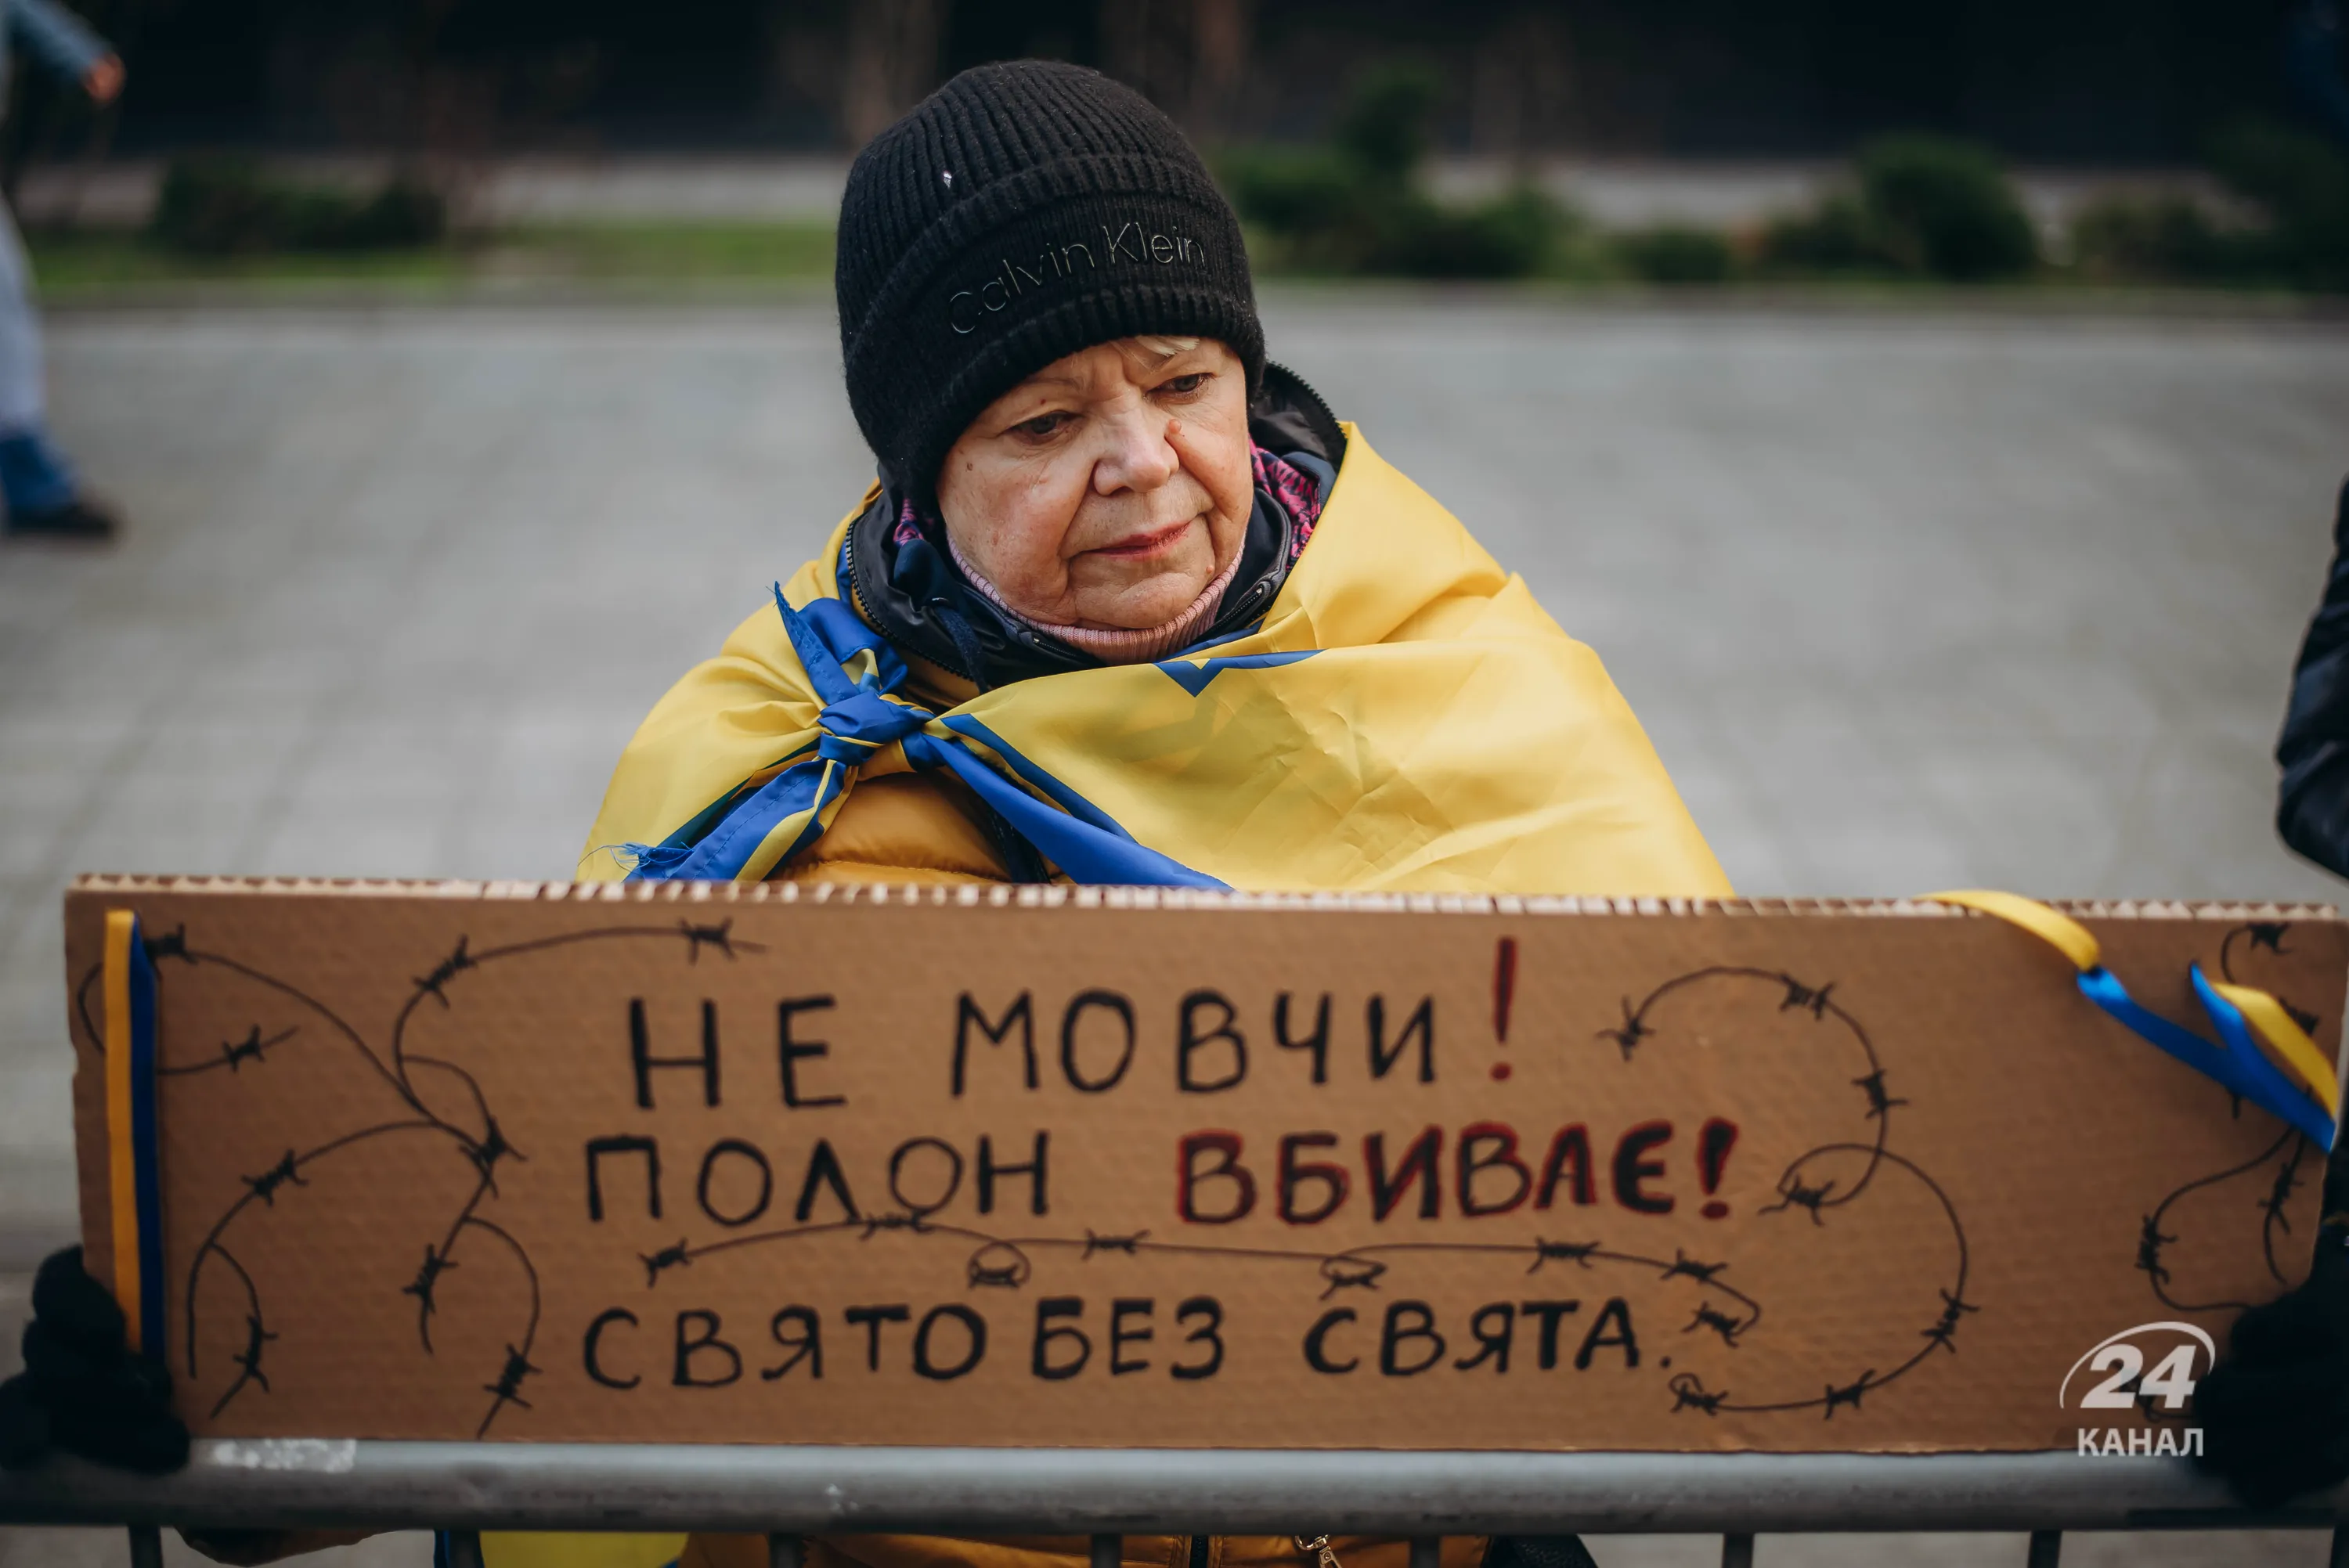 Calvin Klein
НЕ МОВЧИ!
ПОЛОН ВБИВАЄ!
СВЯТО БЕЗ СВЯТА.
24
КАНАЛ